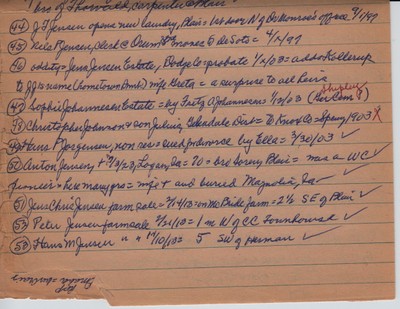 of Thorvald, carpenter @ Blair
(44) J F Jensen opens new laundry, Blair = 1st door N of De Monroe's office 9/1/97
(45) Nels P Jensen, clerk @ Orum moves to DeSoto = 4/2/97
(46) oddity = Jens Jensen Estate, Hedge to probate 1/2/03 = adds Rollerup
to J J's name (hometown Dmk) wife Greta = a surprise to all heirs
(47) Sophie Johannesen Estate = by Fritz A Johannesen 1/19/03 ( Com ?) Shipley
(48) Christopher Johnson & son Julius, Calendale Dist = To Knox Co = Spring 1903 X
(49) Hans P Jorgensen, non res = sued divorce by Ella = 3/30/03 ✓
(50) Anton Jensen, + 3/3/23, Logan, Ia = 70 = bro Soren, Blair = was a WC ✓
pioneer = here many yrs = wife + and buried Magnolia, Ia ✓
(51) Jens Chris Jensen farm sale = 2/14/13 = on McBride farm = 2½ SE of Blair ✓
(52) Peter Jensen farm sale 2/21/13 = 1 m W of CC Townhouse ✓
(53) Hans M Jensen " " 10/10/13 = 5 SW of Herman ✓